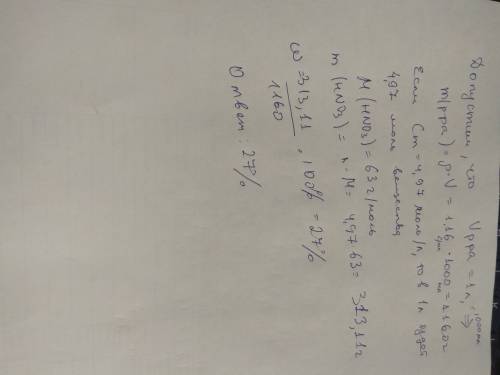 Допустим, что Vрра = 1л, =1000мл ⇒
m(рра) = ρ·V = 1,16 г/мл · 1000 мл = 1160г
Если Cm = 4,97 моль/л, то в 1л будет
4,97 моль вещества
M (HNO3) = 63 г/моль
m (HNO3) = n · M = 4,97·63 = 313,11г
ω = 313,11 / 1160 · 100% = 27%
Ответ: 27%